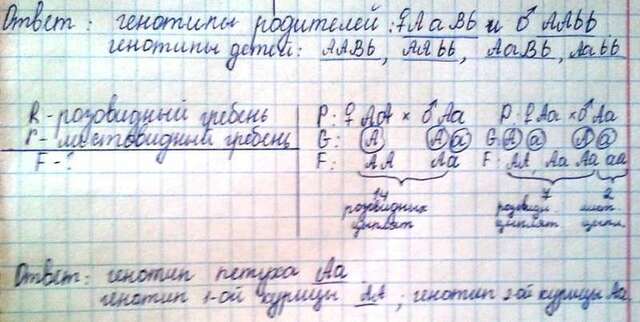 Ответ: генотипы родителей: ♀АаВb и ♂ ААbb
генотипы детей: ААВb, ААbb, АаВb, Ааbb
R - розовидный гребень
r - листовидный гребень
F - ?
P: ♀ АА × ♂ Аа
G: А А а
F: АА Аа
14
розовидных
цыплят
P: ♀Аа × ♂Аа
G: А а А а
F: АА, Аа Аа аа
7 2
розовидн. лист.
цыплят цыпл.
Ответ: генотип петуха Аа
генотип 1-ой курицы АА; генотип 2-ой курицы Аа